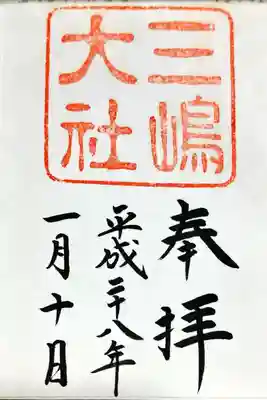 三嶋
大社
奉拝
平成二十八年
一月十日